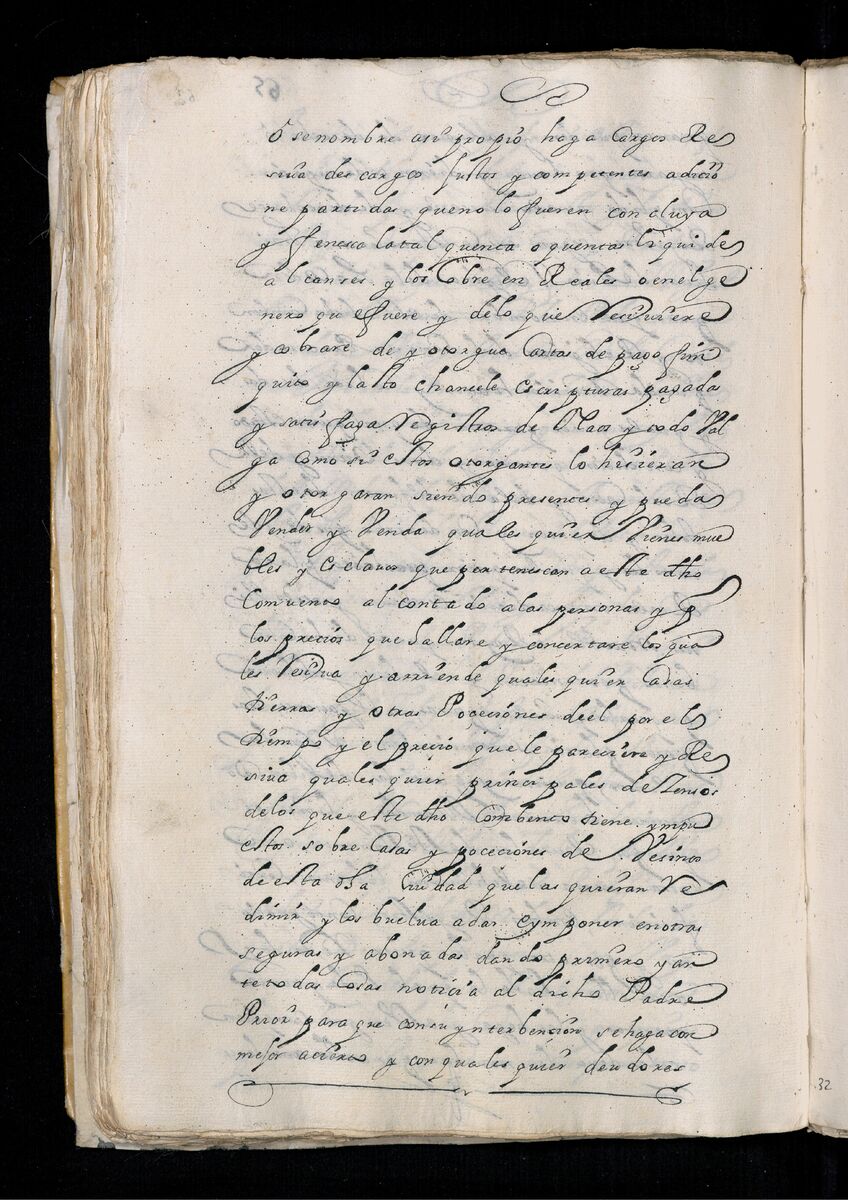 O se nombre asu propio haga cargos Re
siva descargos justos y competentes adicio
ne partidas que no lo fueren concluya
y fenesca la tal quenta o quentas liquide
alcanses y los cobre en Reales o en el ge
nero que fuere y de lo que Resiviere
y cobrare de y otorgue Cartas de pago fini
quito y lasto chancele Escripturas pagadas
y satisfaga Registros de Naos y todo Val
ga como si estos otorgantes lo hicieran
y otorgaran siendo presentes y pueda
Vender y Venda quales quier Vienes mue
bles y Esclavos que pertenescan a este dho
Convento al contado a las personas y p
los precios que hallare y concertare los qua
les Resiva y arriende quales quier Casas
tierras y otras Poceciones deel por el
tiempo y el precio que le pareciere y Re
siva quales quier principales de Zensos
de los que este dho Combento tiene ympu
estos sobre Casas y poceciones de Vesinos
de esta dha Ciudad que las quieran Re
dimir y los buelva a dar e ymponer en otras
seguras y abonadas dando primero y an
te todas Cosas noticia al dicho Padre
Prior para que con su ynterbencion se haga con
mejor acierto y con quales quier deudores
32